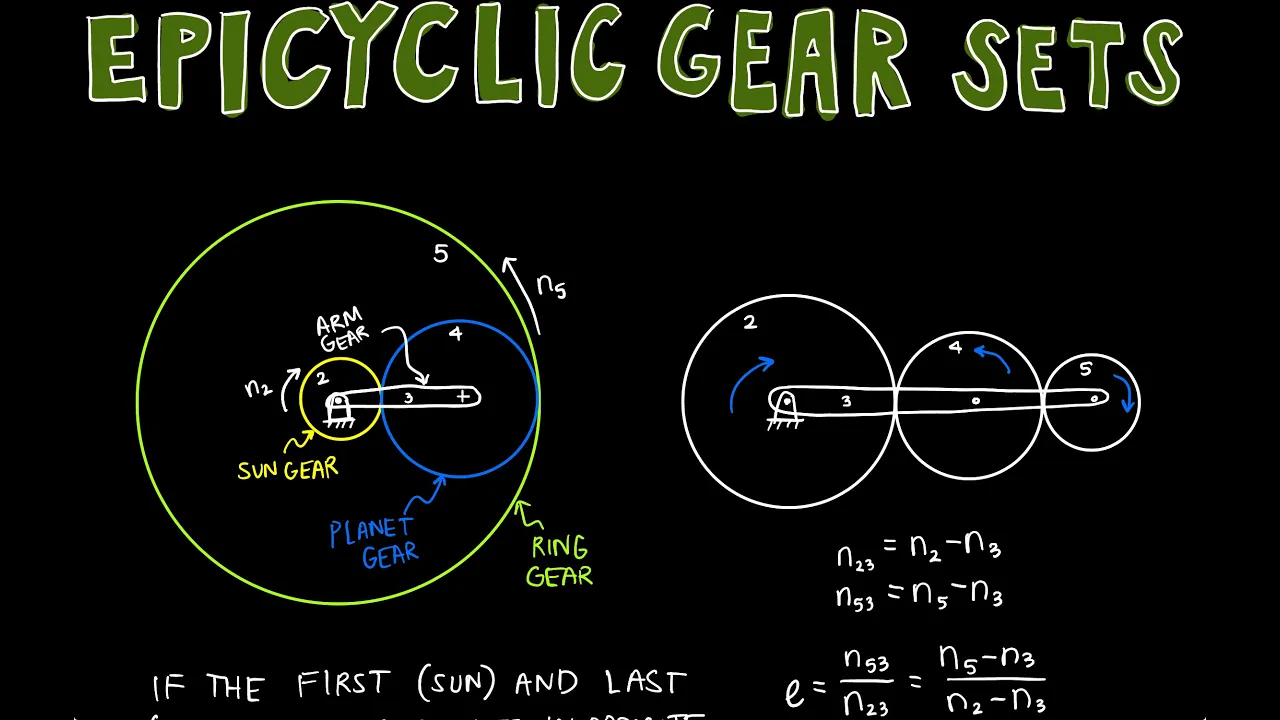 EPICYCLIC GEAR SETS
5
n5
ARM
GEAR
4
n2
2
3
SUN GEAR
PLANET
GEAR
RING
GEAR
2
4
5
3
n23 = n2-n3
n53 = n5-n3
e = n53/n23 = n5-n3/n2-n3
IF THE FIRST (SUN) AND LAST